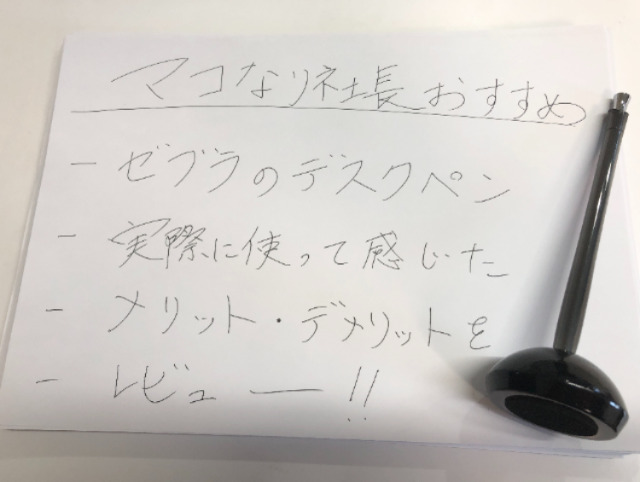 マコなり社長おすすめ
- ゼブラのデスクペン
- 実際に使って感じた
- メリット・デメリットを
- レビュー!!